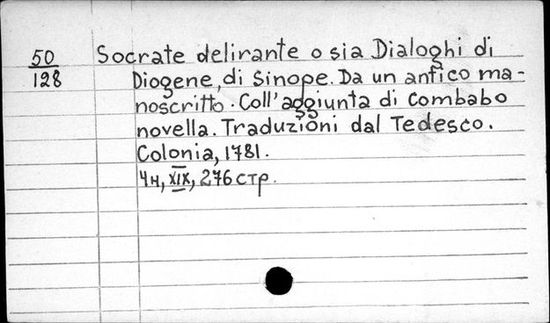 50 Socrate delirante o sia Dialoghi di
128 Diogene, di Sinope. Da un antico ma-
noscritto. Coll'aggiunta di Combabo
novella. Traduzioni dal Tedesco.
Colonia, 1781.
4н, XIX, 276 стр.